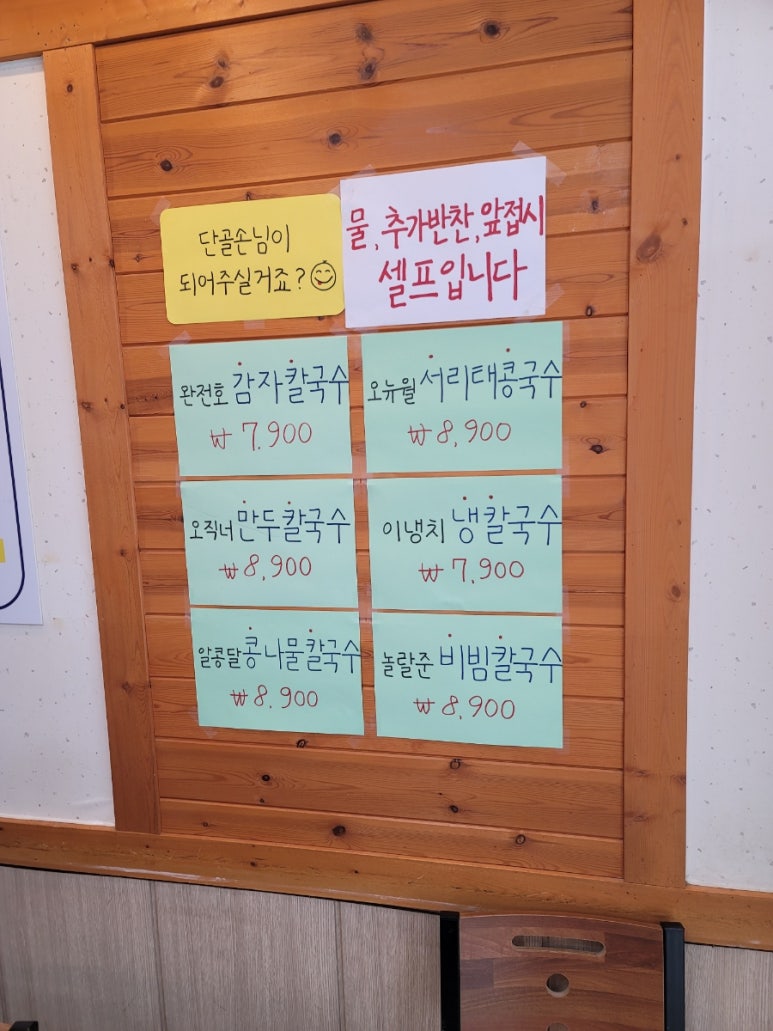 단골손님이
되어주실거죠?
물, 추가반찬, 앞접시
셀프입니다
완전호 감자칼국수
₩ 7,900
오뉴월 서리태콩국수
₩ 8,900
오직너 만두칼국수
₩ 8,900
이냉치 냉칼국수
₩ 7,900
알콩달 콩나물칼국수
₩ 8,900
놀랄준 비빔칼국수
₩ 8,900